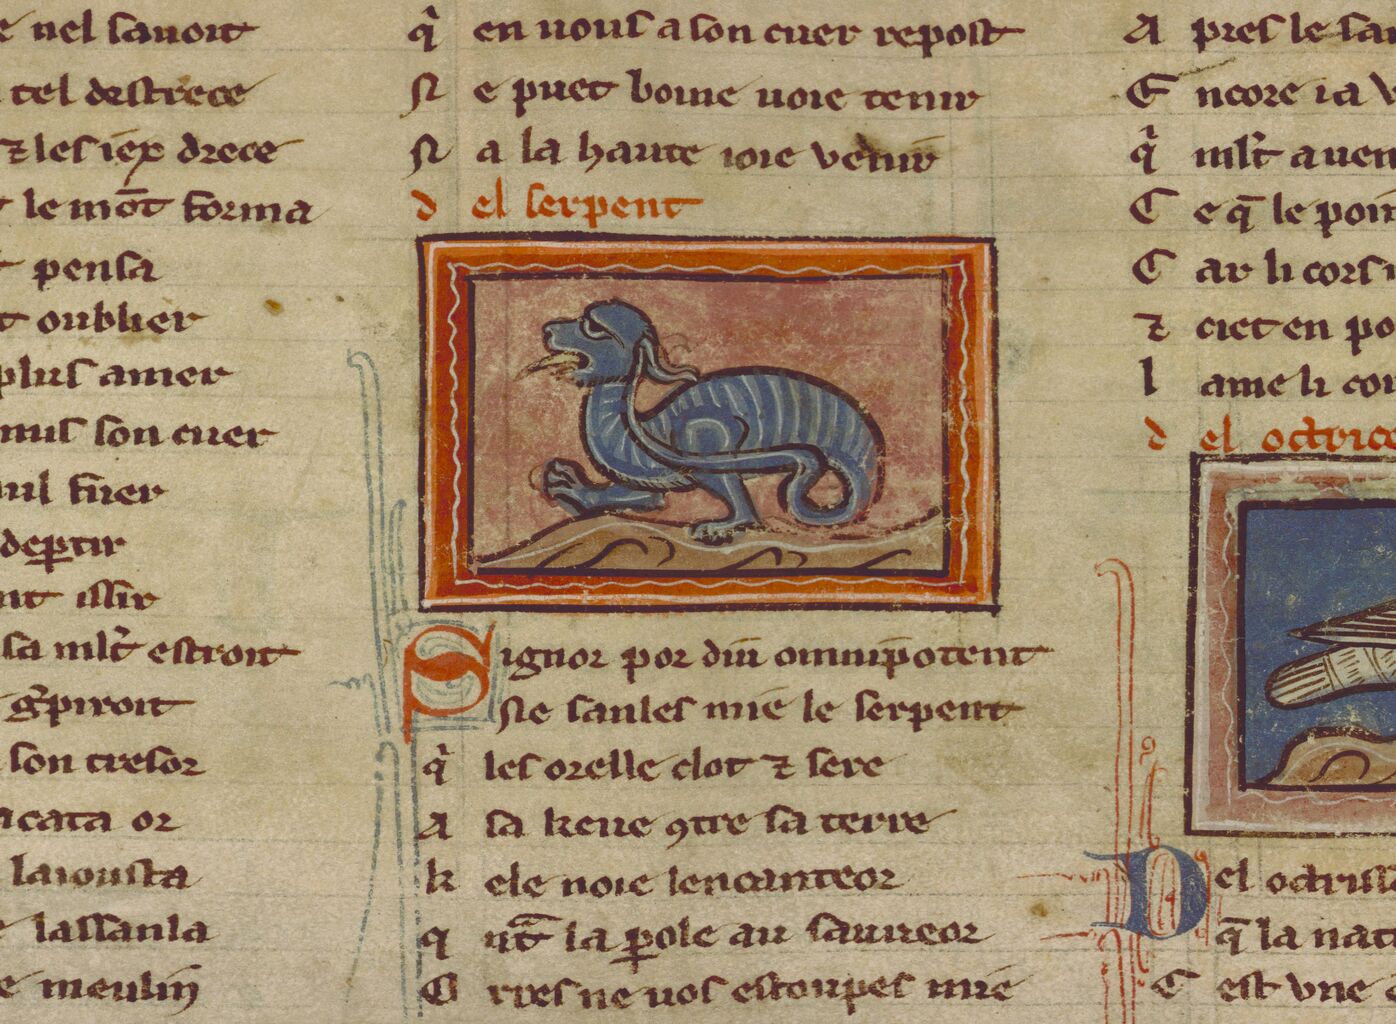 e nel sauoit
tel destrece
⁊ les iex drece
le mōt forma
pensa
oublier
plus amer
son cuer
fuer
deꝑtir
issir
sa mlt estroit
son tresor
or
laiousta
lassanla
q̓ en nous a son cuer repost
N e puet boine uoie tenir
N a la haute ioie venir
d el serpent
Signor por diu omnipotent
Ne sanles mie le serpent
q̓ les orelle clot ⁊ sere
A sa keue ꝯtre sa terre
k ele noie lencanteor
q nt la ꝑole au sauueor
O rres ne uos estoupes mie
A pres le
E ncore ia
q̓ mlt auen
C e q̄ le poin
C ar li cors
⁊ ciet en po
l ame li cor
d el octrice
Del octriss
q̄ la nat
C est vne